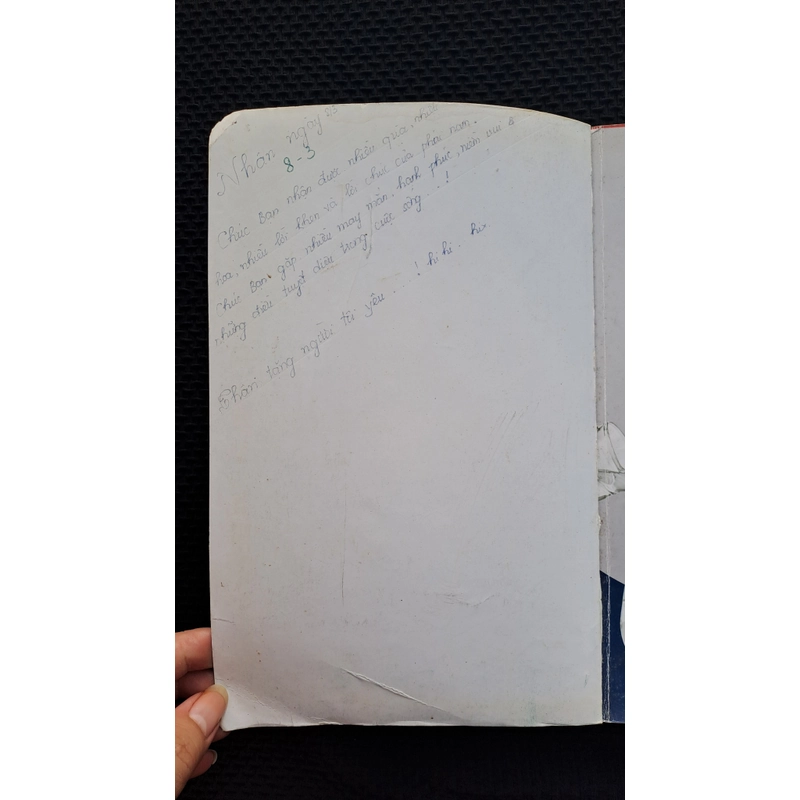 Nhân ngày
8-3
Chúc Bạn nhận được nhiều quà, nhiều
hoa, nhiều lời khen và lời chúc của phái nam.
Chúc Bạn gặp nhiều may mắn, hạnh phúc, niềm vui &
những điều tuyệt diệu trong cuộc sống...!
Thân tặng người tôi yêu.....! hi hi.. hi